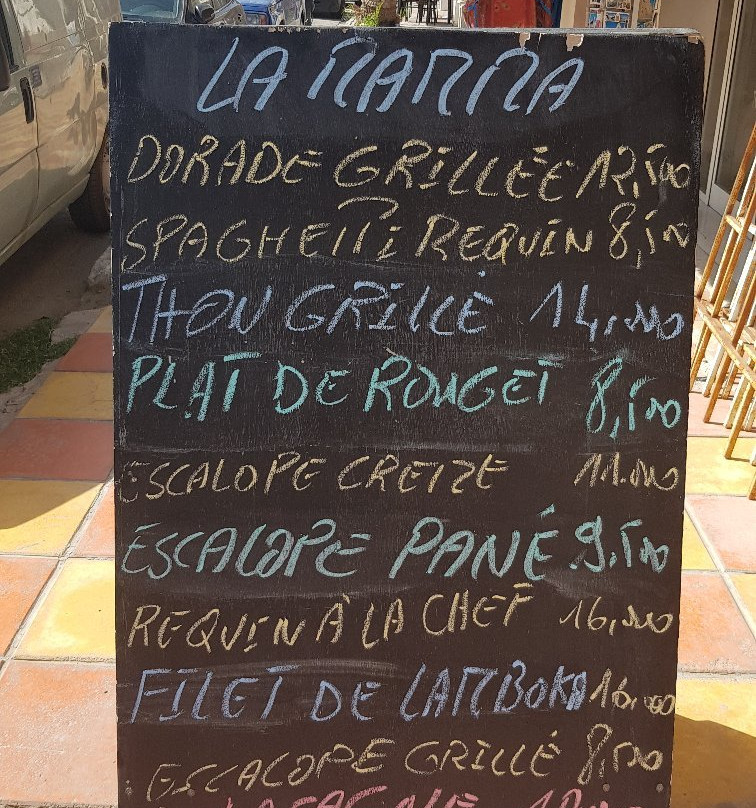 LA MAMMA
DORADE GRILLÉE 12,500
SPAGHETTI REQUIN 8,500
THON GRILLÉ 14,000
PLAT DE ROUGET 8,500
ESCALOPE CREME 11.000
ESCALOPE PANÉ 9,500
REQUIN À LA CHEF 16,000
FILET DE LAMBOKA 16,000
ESCALOPE GRILLÉ 8,500